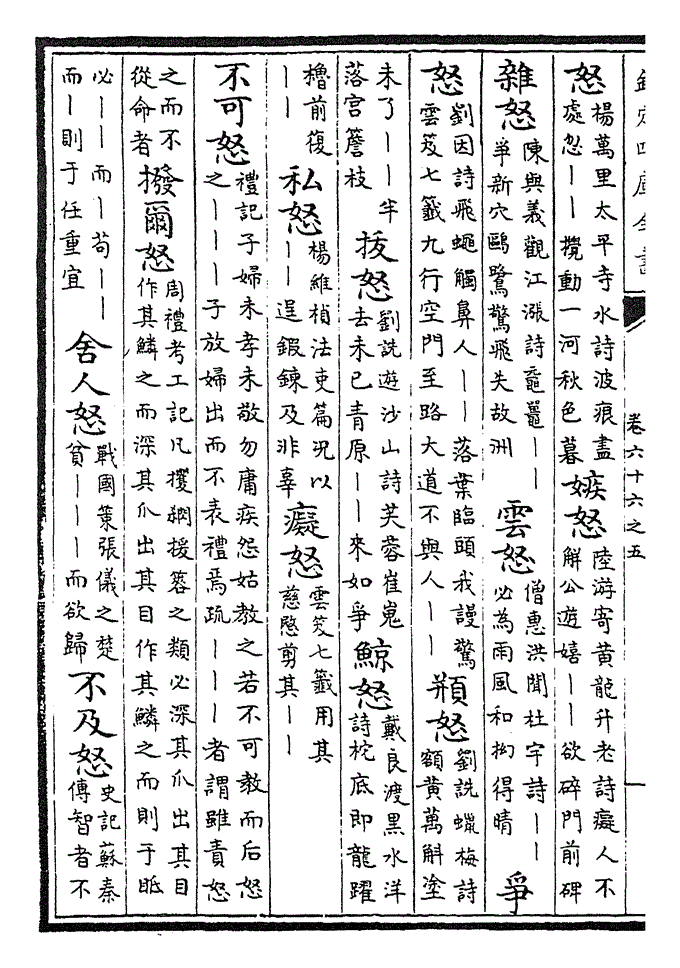 欽定四庫全書 卷六十六之五 一
怒 楊萬里太平寺水詩波痕盡處忽丨丨攪動一河秋色暮 嫉怒 陸游寄黃龍升老詩癡人不解公遊嬉丨丨欲碎門前碑
雜怒 陳與義觀江漲詩黿鼉丨丨爭新穴鷗鷺驚飛失故洲 雲怒 僧惠洪聞杜宇詩丨丨必為雨風和抝得晴 爭
怒 劉因詩飛蠅觸鼻人丨丨落葉臨頭我謾驚雲笈七籤九行空門至路大道不與人丨丨 頩怒 劉詵蠟梅詩額黃萬斛塗
未了丨丨半落宮簷枝 拔怒 劉詵遊沙山詩芙蓉崔嵬去未已青原丨丨來如爭 鯨怒 戴良渡黑水洋詩柁底即龍躍
櫓前復丨丨 私怒 楊維楨法吏篇況以丨丨逞鍛鍊及非辜 癡怒 雲笈七籤用其慈愍剪其丨丨
不可怒 禮記子婦未孝未敬勿庸疾怨姑教之若不可教而后怒之丨丨丨子放婦出而不表禮焉疏丨丨丨者謂雖責怒
之而不從命者 撥爾怒 周禮考工記凡攫閷援簭之類必深其爪出其目作其鱗之而深其爪出其目作其鱗之而則于眡
必丨丨而丨苟丨丨而丨則于任重宜 舍人怒 戰國策張儀之楚貧丨丨丨而欲歸 不及怒 史記蘇秦傳智者不